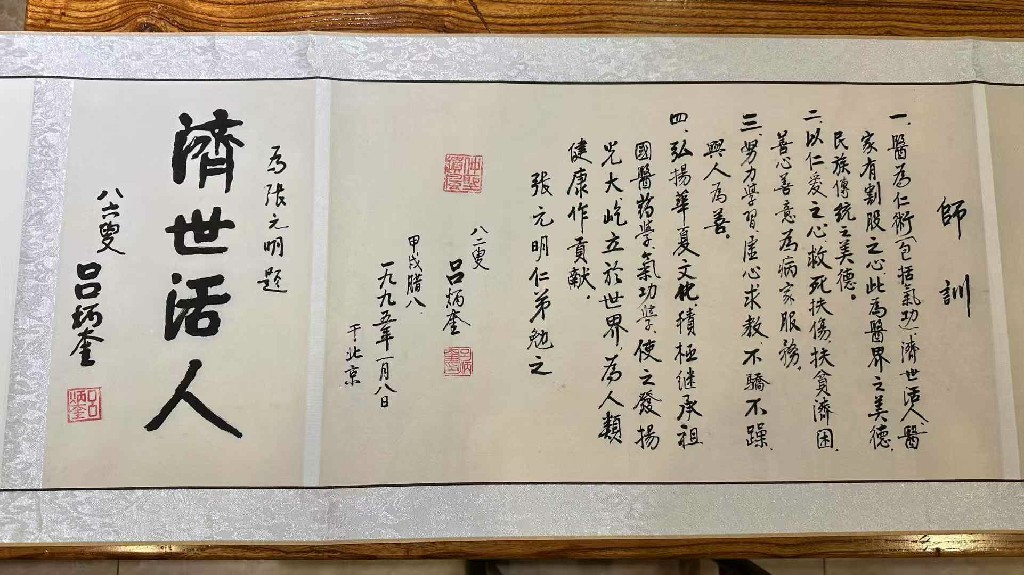 師訓
一、醫為仁術(包括氣功)濟世活人、醫
家有割股之心、此為醫界之美德、
民族傳統之美德。
二、以仁爱之心救死扶傷扶貧濟困、
善心善意為病家服務。
三、努力學習、虛心求教、不驕不躁、
與人為善。
四、弘揚華夏文化、積極继承祖
國醫药學氣功學、使之發揚
光大屹立於世界、為人類
健康作貢献。
張元明仁弟勉之
八二叟 呂炳奎
甲戌腊八、
一九九五年一月八日
于北京
為張元明题
濟世活人
八六叟 呂炳奎
呂炳奎